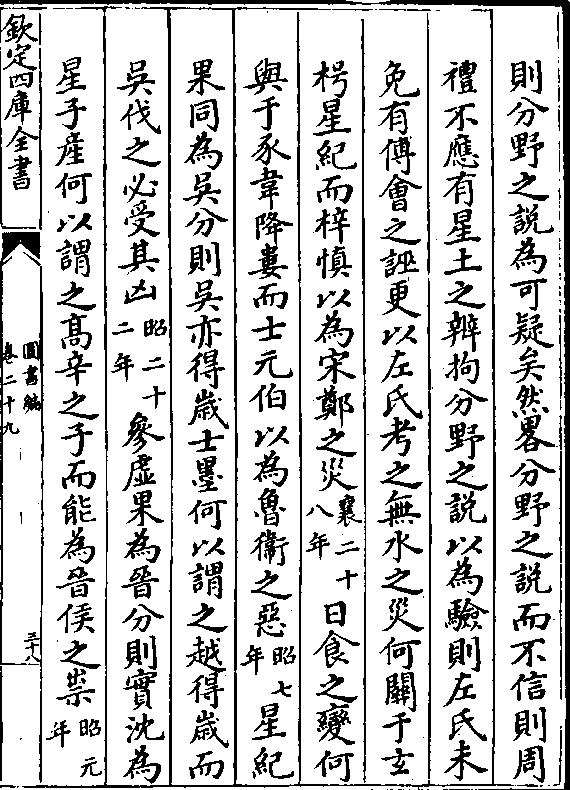 則分野之說為可疑矣然畧分野之說而不信則周
禮不應有星土之辨拘分野之說以為驗則左氏未
免有傅會之誣更以左氏考之無水之災何關于玄
枵星紀而梓慎以為宋鄭之災襄二十八年日食之變何
與于豕韋降婁而士元伯以為魯衛之惡昭七年星紀
果同為吳分則吳亦得歲士墨何以謂之越得歲而
吳伐之必受其凶昭二十二年參虛果為晉分則實沈為
星子產何以謂之高辛之子而能為晉侯之祟昭元年
欽定四庫全書
圖書編
卷二十九
三十八